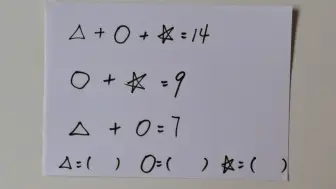 △ + ○ + ☆ = 14
○ + ☆ = 9
△ + ○ = 7
△ = ( ) ○ = ( ) ☆ = ( )